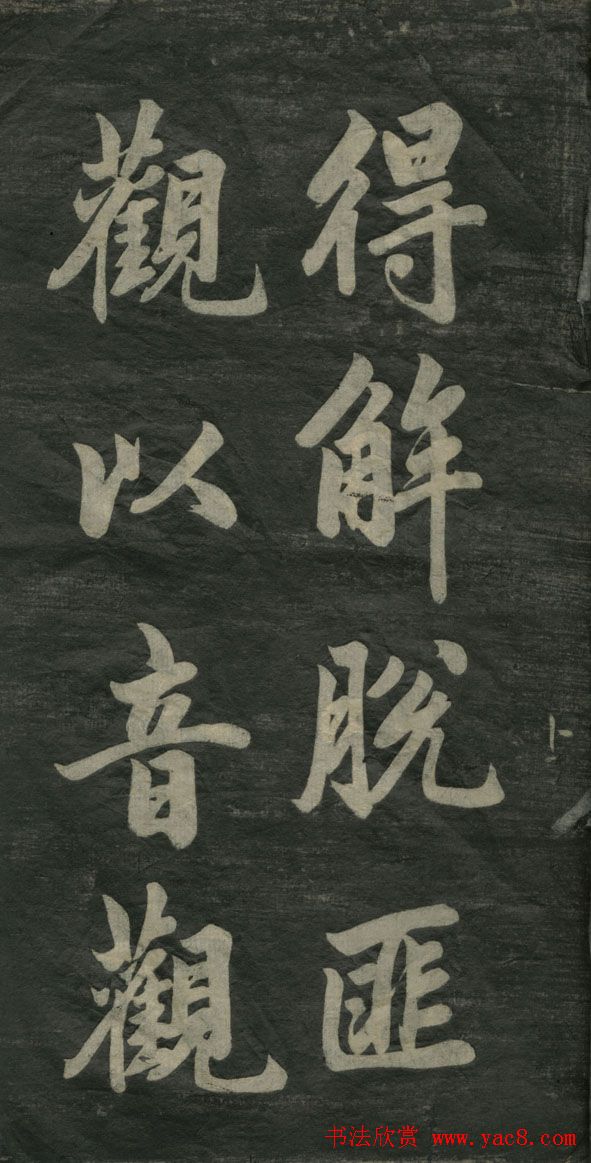 得解脱匪
觀以音觀
书法欣赏 www.yac8.com